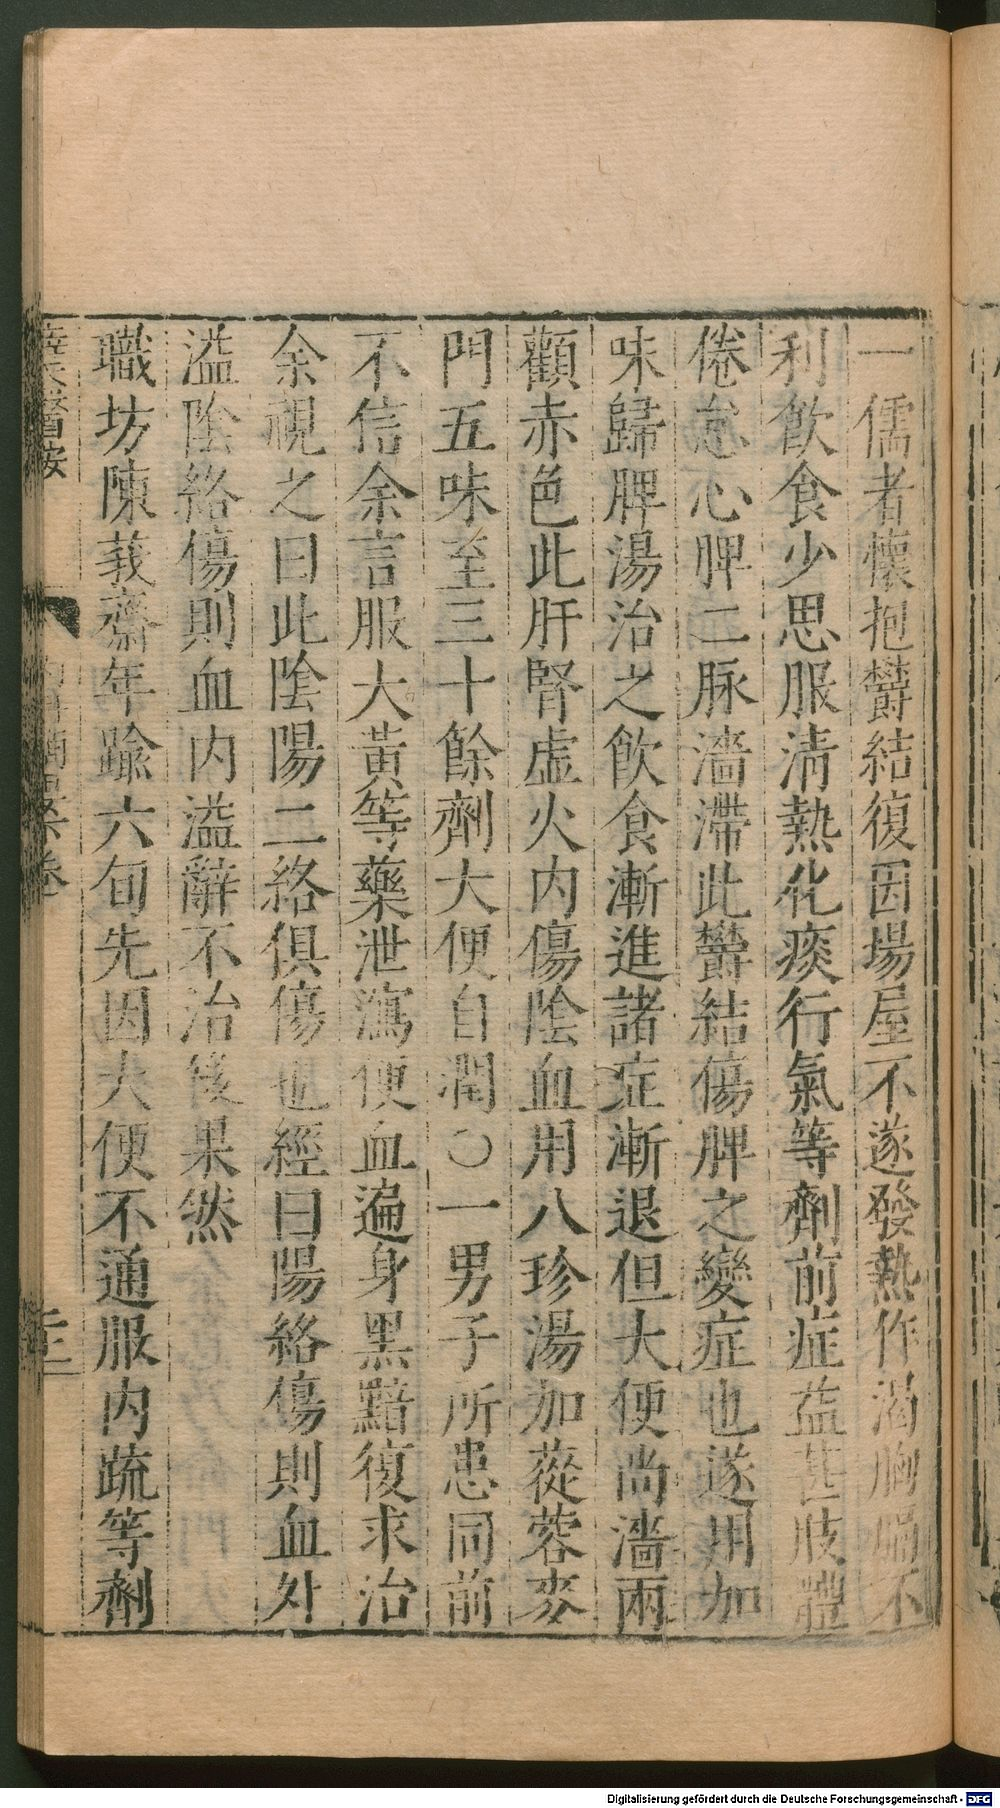 一儒者懷抱鬱結復因場屋不遂發熱作渴胸膈不
利飲食少思服清熱化痰行氣等劑前症益甚肢體
倦怠心脾二脉濇滯此鬱結傷脾之變症也遂用加
味歸脾湯治之飲食漸進諸症漸退但大便尚濇兩
顴赤色此肝腎虛火内傷陰血用八珍湯加蓯蓉麥
門五味至三十餘劑大便自潤〇一男子所患同前
不信余言服大黃等藥泄瀉便血遍身黑黯復求治
余視之曰此陰陽二絡俱傷也經曰陽絡傷則血外
溢陰絡傷則血内溢辭不治後果然
職坊陳莪齋年踰六旬先因大便不通服内疏等劑
薛氏醫按
内科摘要卷
Digitalisierung gefördert durch die Deutsche Forschungsgemeinschaft - DFG